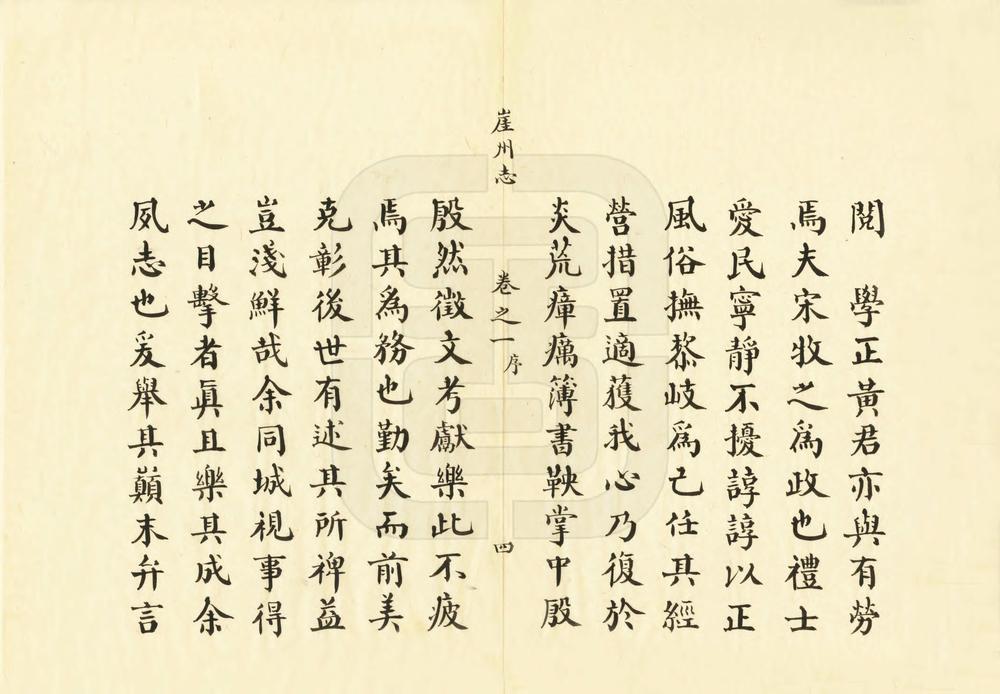 閱　學正黃君亦與有勞
焉夫宋牧之為政也禮士
愛民寧靜不擾諄諄以正
風俗撫黎岐爲己任其經
營措置適獲我心乃復於
炎荒瘴癘簿書鞅掌中殷
崖州志 卷之一 序 四
殷然徵文考獻樂此不疲
焉其為務也勤矣而前美
克彰後世有述其所裨益
豈淺鮮哉余同城視事得
之目擊者眞且樂其成余
夙志也爰舉其巔末弁言